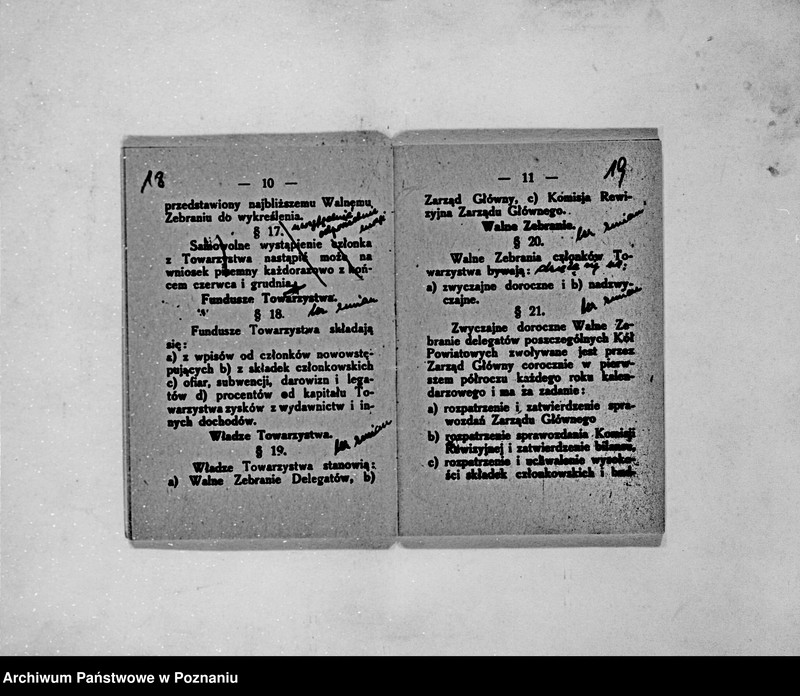 18
— 10 —
przedstawiony najbliższemu Walnemu
Zebraniu do wykreślenia.
§ 17.
Samowolne wystąpienie członka
z Towarzystwa nastąpić może na
wniosek pisemny każdorazowo z koń-
cem czerwca i grudnia.
Fundusze Towarzystwa.
bez zmian
§ 18.
Fundusze Towarzystwa składają
się:
a) z wpisów od członków nowowstę-
pujących b) z składek członkowskich
c) ofiar, subwencji, darowizn i lega-
tów d) procentów od kapitału To-
warzystwa zysków z wydawnictw i in-
nych dochodów.
Władze Towarzystwa.
bez zmian
§ 19.
Władze Towarzystwa stanowią:
a) Walne Zebranie Delegatów, b)
19
— 11 —
Zarząd Główny, c) Komisja Rewi-
zyjna Zarządu Głównego.
Walne Zebranie.
bez zmian
§ 20.
Walne Zebrania członków To-
warzystwa bywają: dzielą się na:
a) zwyczajne doroczne i b) nadzwy-
czajne.
bez zmian
§ 21.
Zwyczajne doroczne Walne Ze-
branie delegatów poszczególnych Kół
Powiatowych zwoływane jest przez
Zarząd Główny corocznie w pierw-
szem półroczu każdego roku kalen-
darzowego i ma za zadanie:
a) rozpatrzenie i zatwierdzenie spra-
wozdań Zarządu Głównego
b) rozpatrzenie sprawozdania Komisji
Rewizyjnej i zatwierdzenie bilansu,
c) rozpatrzenie i uchwalenie wysoko-
ści składek członkowskich i bud-
Archiwum Państwowe w Poznaniu